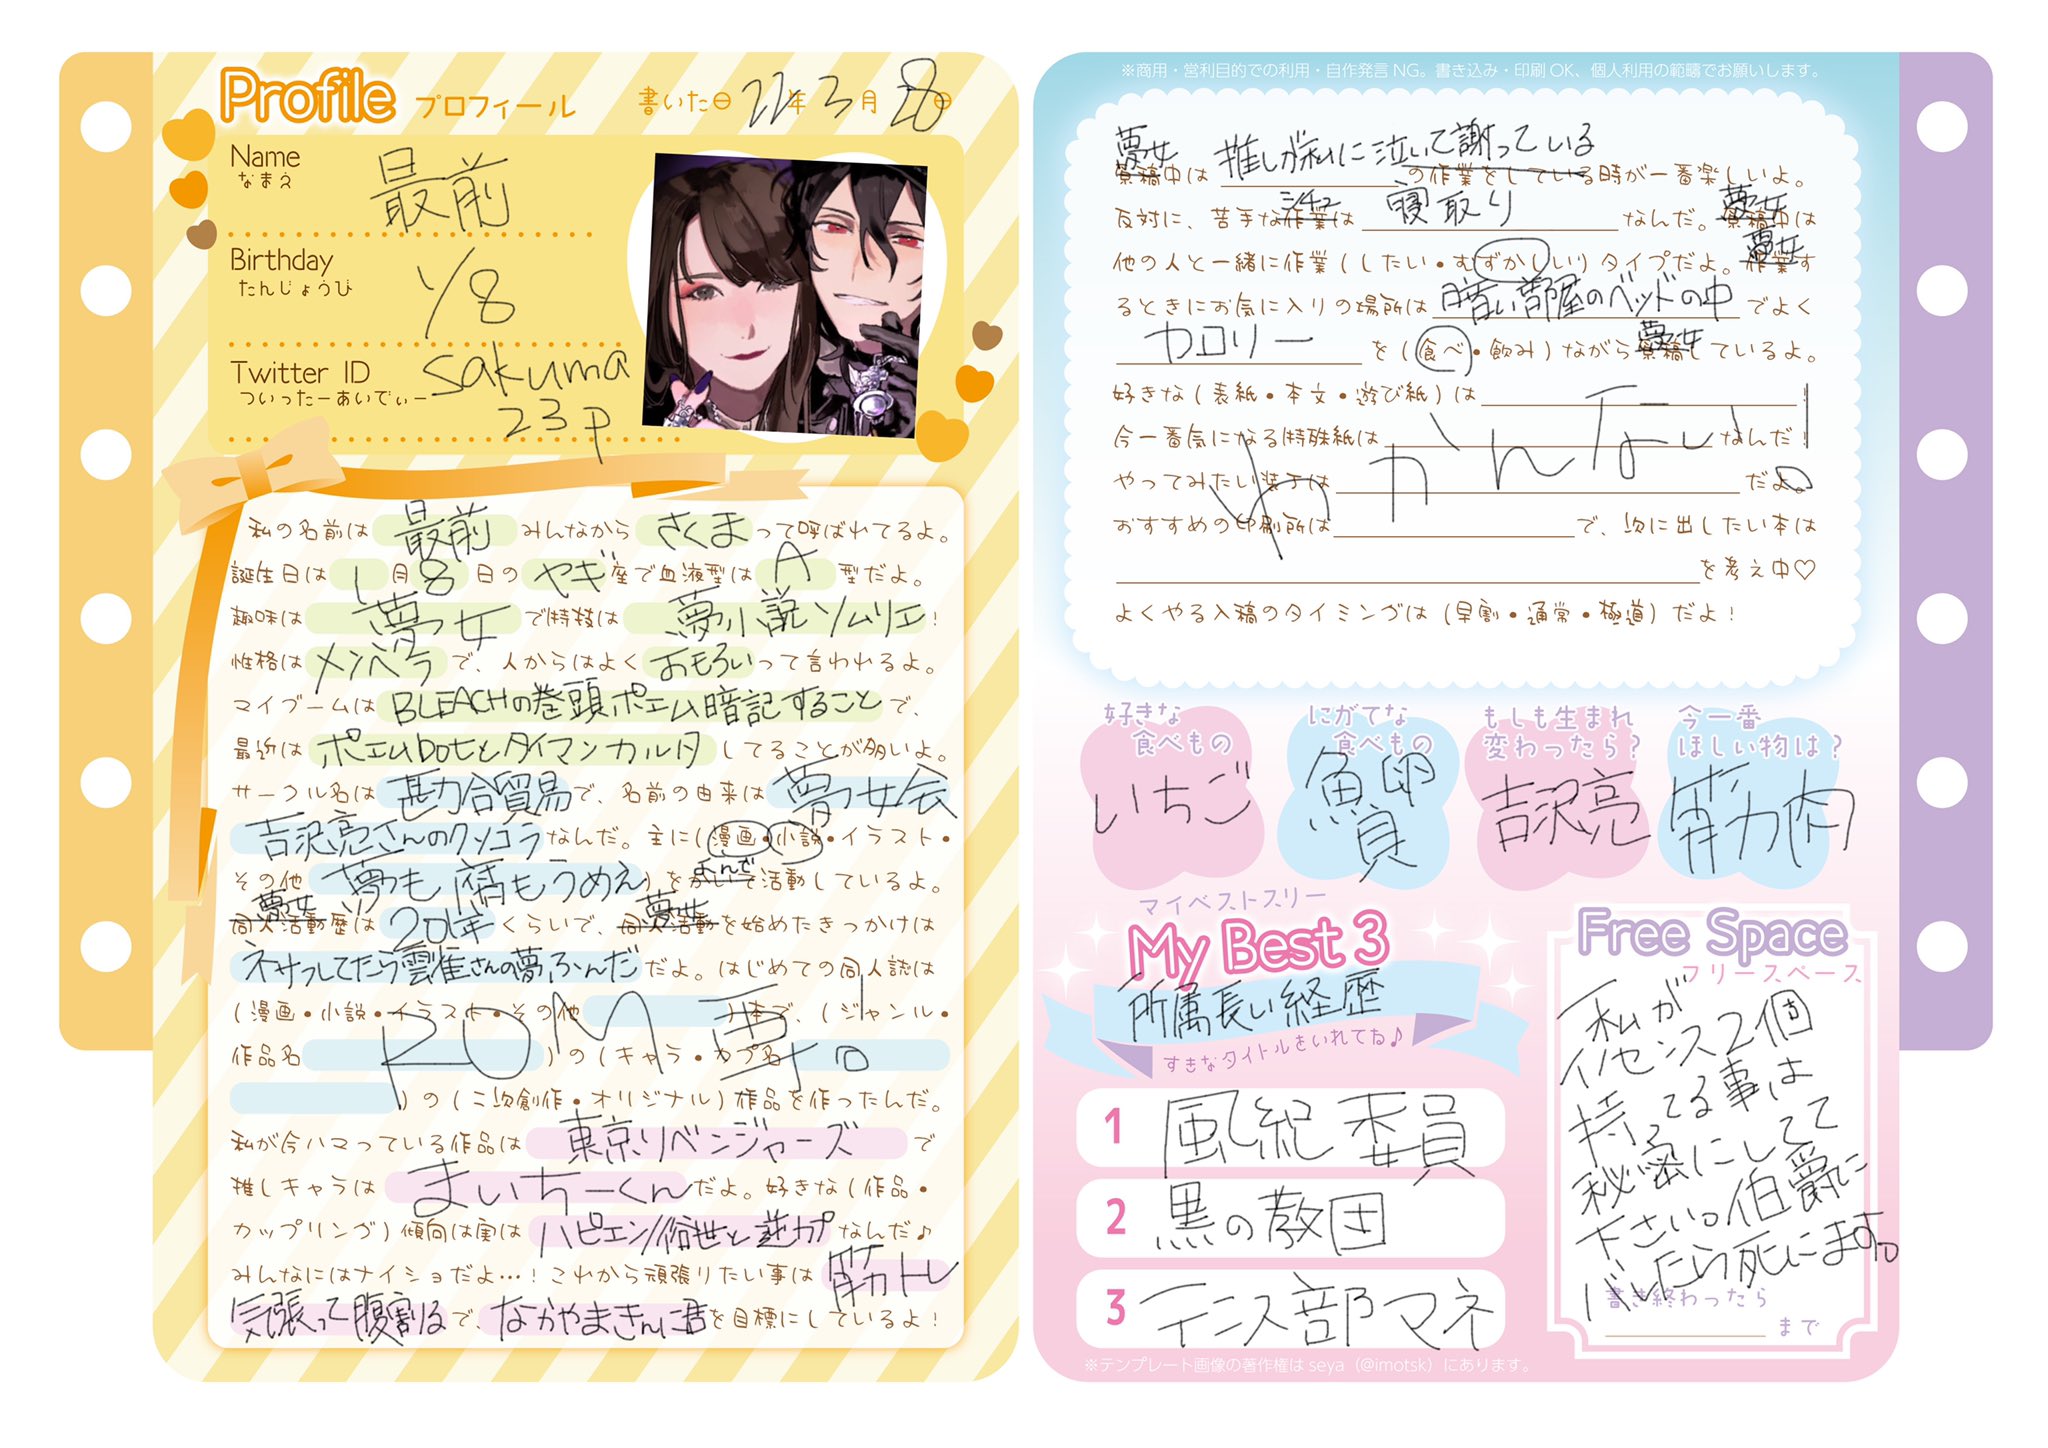 Profile プロフィール 書いた日 22年 3月 28日
Name
なまえ
最前
Birthday
たんじょうび
1/8
Twitter ID
ついったーあいでぃー
sakuma
23p
私の名前は 最前 みんなから さくま って呼ばれてるよ。
誕生日は 1 月 8 日の ヤギ 座で血液型は A 型だよ。
趣味は 夢女 で特技は 夢小説ソムリエ !
性格は メンヘラ で、人からはよく おもろい って言われるよ。
マイブームは BLEACHの巻頭ポエム暗記すること で、
最近は ポエムbotとタイマンカルタ してることが多いよ。
サークル名は 勘合貿易 で、名前の由来は 夢女会
吉沢亮さんのクソコラ なんだ。主に(漫画・小説・イラスト・
その他 夢も腐もうめえ)をかいて よんで 活動しているよ。
同人活動歴は 夢女 20年 くらいで、同人活動 夢女 を始めたきっかけは
ネサフしてたら雲雀さんの夢ふんだ だよ。はじめての同人誌は
(漫画・小説・イラスト・その他 )本で、(ジャンル・
作品名 )の(キャラ・カプ名
)の(二次創作・オリジナル)作品を作ったんだ。
ROM専。
私が今ハマっている作品は 東京リベンジャーズ で
推しキャラは まいちーくん だよ。好きな(作品・
カップリング)傾向は実は ハピエン/俗世と逆カプ なんだ♪
みんなにはナイショだよ…!これから頑張りたい事は 筋トレ
気張って腹割る で、なかやまきんに君 を目標にしているよ!
※商用・営利目的での利用・自作発言 NG。書き込み・印刷 OK、個人利用の範疇でお願いします。
夢女 推しが私に泣いて謝っている
原稿中は の作業をしている時が一番楽しいよ。
反対に、苦手な作業 シチュ は 寝取り なんだ。原稿中 夢女 は
他の人と一緒に作業(したい・むずかしい)タイプだよ。作業 夢女 す
るときにお気に入りの場所は 暗い部屋のベッドの中 でよく
カロリー を(食べ・飲み)ながら原稿 夢女 しているよ。
好きな(表紙・本文・遊び紙)は
今一番気になる特殊紙は なんだ!
やってみたい装丁は だよ。
おすすめの印刷所は で、次に出したい本は
を考え中♡
わかんない!
よくやる入稿のタイミングは(早割・通常・極道)だよ!
好きな
食べもの
いちご
にがてな
食べもの
魚卵
貝
もしも生まれ
変わったら?
吉沢亮
今一番
ほしい物は?
筋肉
マイベストスリー
My Best 3
所属長い経歴
すきなタイトルをいれてね♪
1 風紀委員
2 黒の教団
3 テニス部マネ
Free Space
フリースペース
私が
イノセンス2個
持ってる事は
秘密にしてて
下さい。伯爵に
バレたら死にます。
書き終わったら
まで
※テンプレート画像の著作権は seya(@imotsk)にあります。